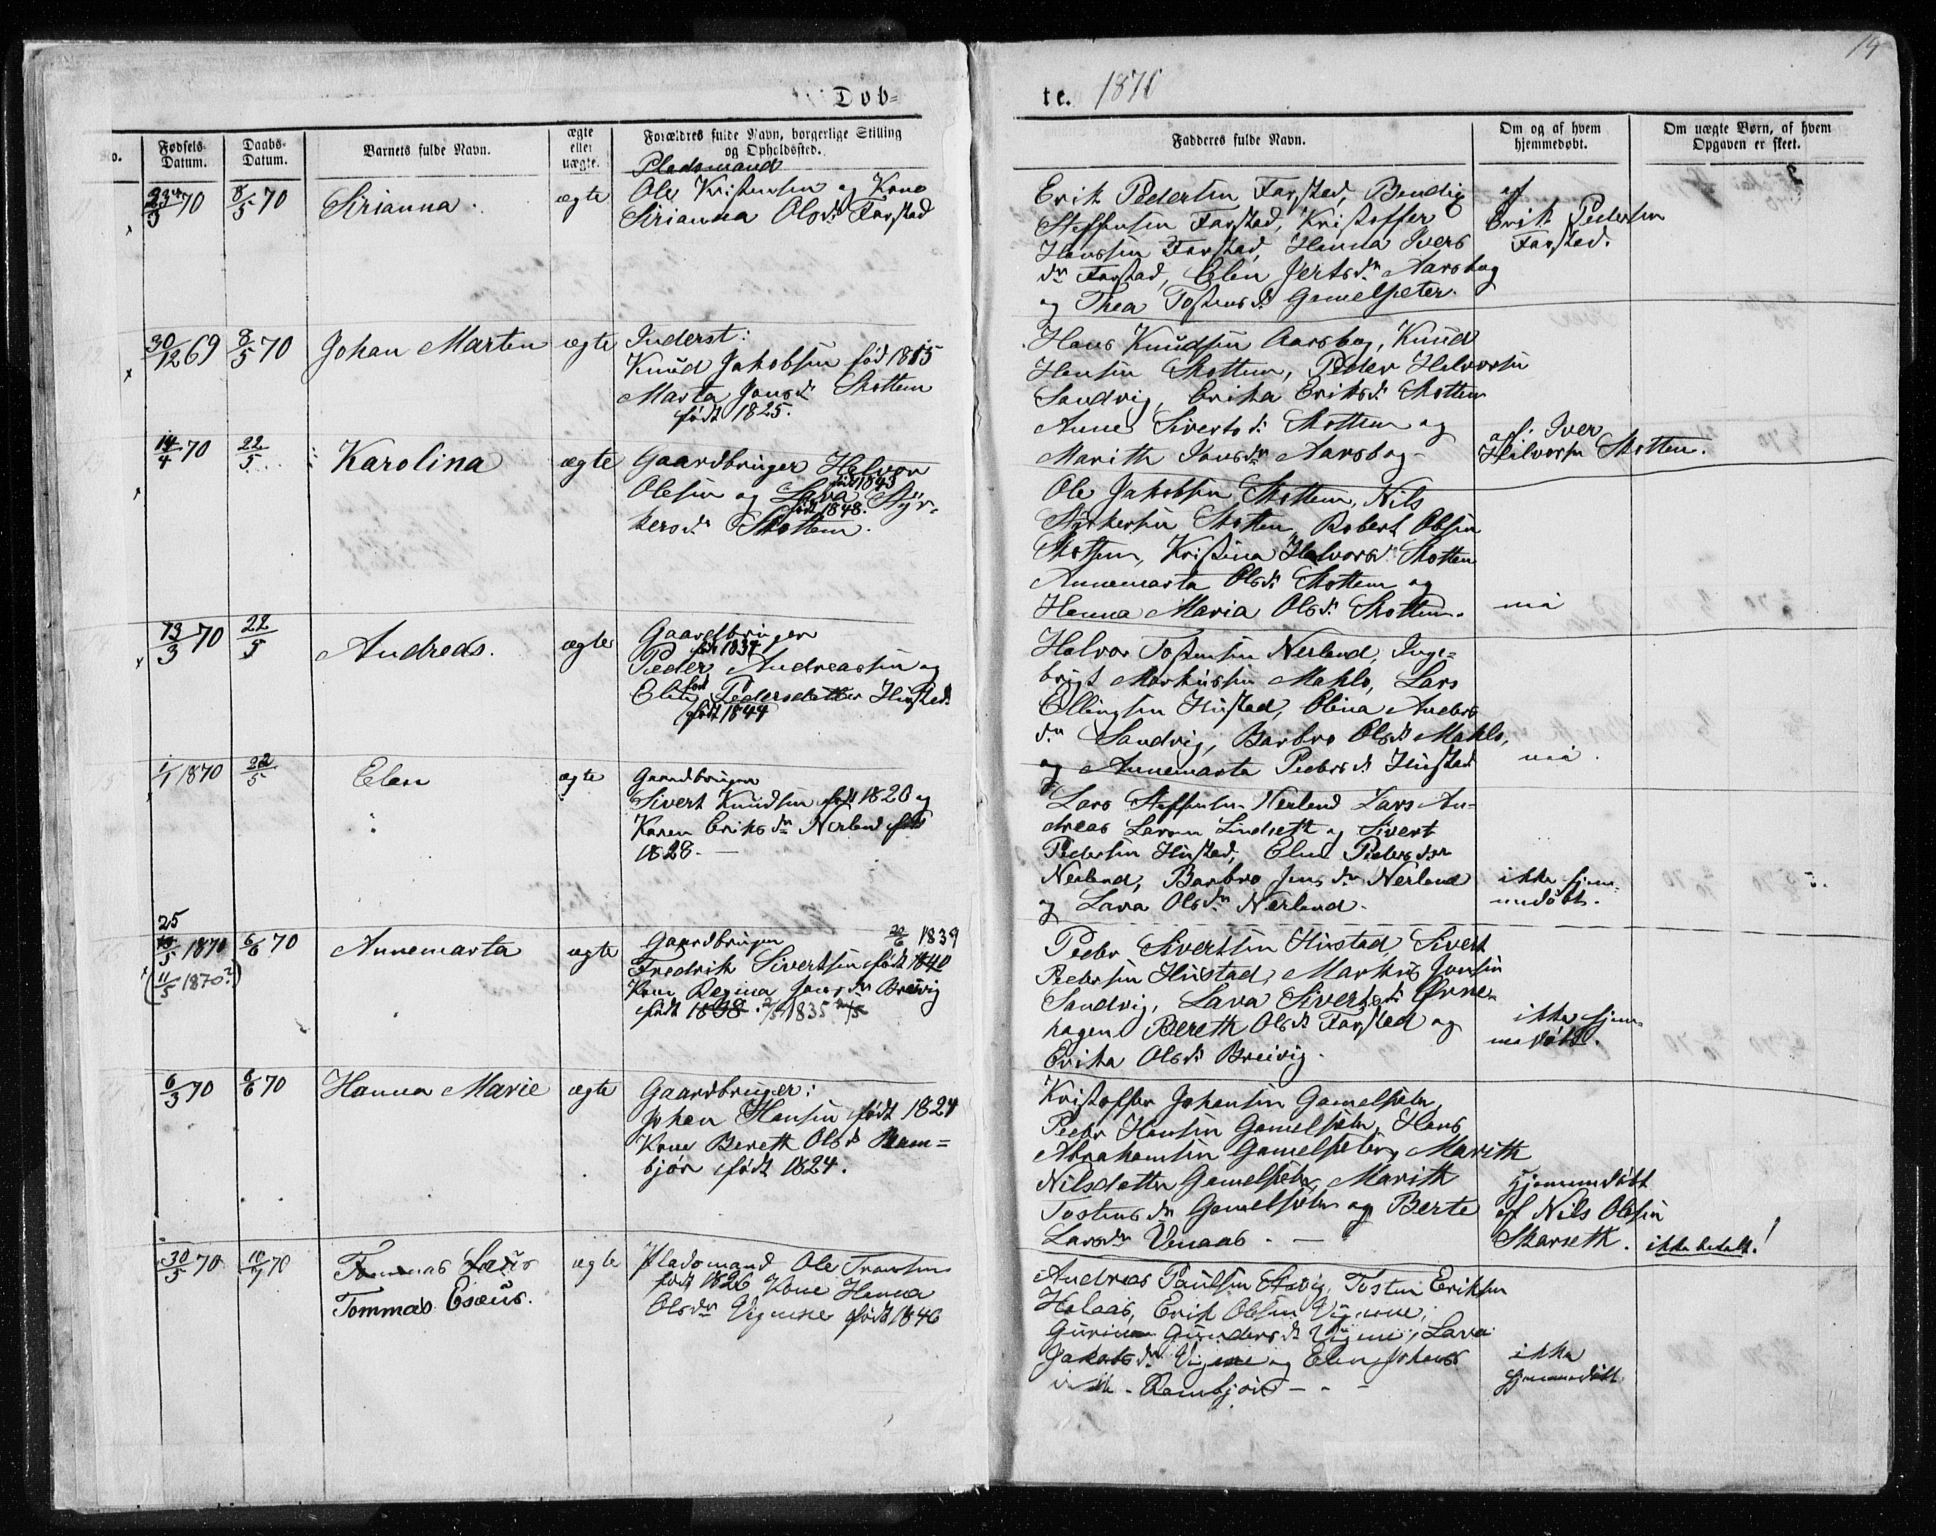 14
Døb-
te. 1870
o.
Fødsels-
Datum.
Daabs-
Datum.
Barnets fulde Navn.
ægte
eller
uægte.
Forældres fulde Navn, borgerlige Stilling
og Opholdssted.
Fadderes fulde Navn.
Om og af hvem
hjemmedøbt.
Om uægte Børn, af hvem
Opgaven er skeet.
23/3 70
8/5 70
Sirianna.
ægte
Pladsmand
Ole Kristensen og Kone
Sirianna Olsdr Farstad
Erik Pedersen Farstad, Bendig
Steffensen Farstad, Kristoffer
Hanssen Farstad, Hanna Ivers
dr Farstad, Elen Jertsdr Aarsbog
og Thea Tostensdr Gamelsæter.
af
Erik Pedersen
Farstad.
30/12 69
8/5 70
Johan Martin
ægte
Inderst:
Knud Jakobsen fød 1815
Marta Jonsdr Skottem
født 1825.
Hans Knudsen Aarsbog, Knud
Hansen Skottem, Peder Halvorsen
Sandvig, Erika Eriksdr Skottem
Anne Sivertsdr Skottem og
Marith Jonsdr Aarsbog
14/4 70
22/5
Karolina
ægte
Gaardbruger Halvor
født 1843
Olesen og Lava Styr-
født 1848.
kersdr Skottem.
af Iver
Halvorsen Skottem.
Ole Jakobsen Skottem, Nils
Styrkersen Skottem, Robert Olsen
Skottem, Kristina Halvorsdr Skottem
Annemarta Olsdr Skottem og
Hanna Maria Olsdr Skottem.
13/3 70
22/5
Andreas.
ægte
Gaardbruger
født 1837
Peder Andreassen og
Eli Pedersdatter Hustad
født 1844
Halvor Tostensen Nerland, Inge=
brigt Markussen Mahlo, Lars
Ellingsen Hustad, Olina Anders
dr Sandvig, Barbro Olsdr Mahlo,
og Annemarta Pedersdr Hustad
nei
1/1 1870
22/5
Elen
ægte
Gaardbruger
Sivert Knudsen født 1820 og
Karen Eriksdr Nerland født
1828.
Lars Steffensen Nerland Lars An-
dreas Larsen Lindseth og Sivert
Pedersen Hustad, Elen Pedersdr
Nerland, Barbro Jensdr Nerland
og Lava Olsdr Nerland.
nei.
ikke hjem-
medøbt.
25
/5 1870
(11/5 1870?)
6/6 70
Annemarta
ægte
Gaardbruger 22/6 1839
Fredrik Sivertsen født 1840
Kone Regina Jonsdr Breivig
født 1838. 1835
Peder Sivertsen Hustad, Sivert
Pedersen Hustad, Markus Jonsen
Sandvig, Lava Sivertsdr Ørne-
hagen Bereth Olsdr Farstad og
Erika Olsdr Breivig.
ikke hjem-
medøbt.
6/3 70
6/6 70
Hanna Marie
ægte
Gaardbruger:
Johan Hansen født 1824
Kone Bereth Olsdr Ram=
bjør født 1824.
Kristoffer Johansen Gamelsæter,
Peder Hansen Gamelsæter, Hans
Abrahamsen Gamelsæter, Marith
Nilsdatter Gamelsæter, Marith
Tostensdr Gamelsæter og Berte
Larsdr Venaas.
Hjemmedøbt
af Nils Olsen
Skarseth.
ikke betalt!
30/5 70
10/7 70
Tommas Esæus
Tommas Esæus.
ægte
Pladsmand Ole Transen
født 1826 Kone Hanna
Olsdr Vigene født 1846
Andreas Paulsen Stavig, Tosten Eriksen
Halaas, Erik Olsen Vigene,
Gurine Gundersdr Vigene, Lava
Jakobsdr Vigene og Elen Johans
dr Rambjør
ikke
hjemmedøbt